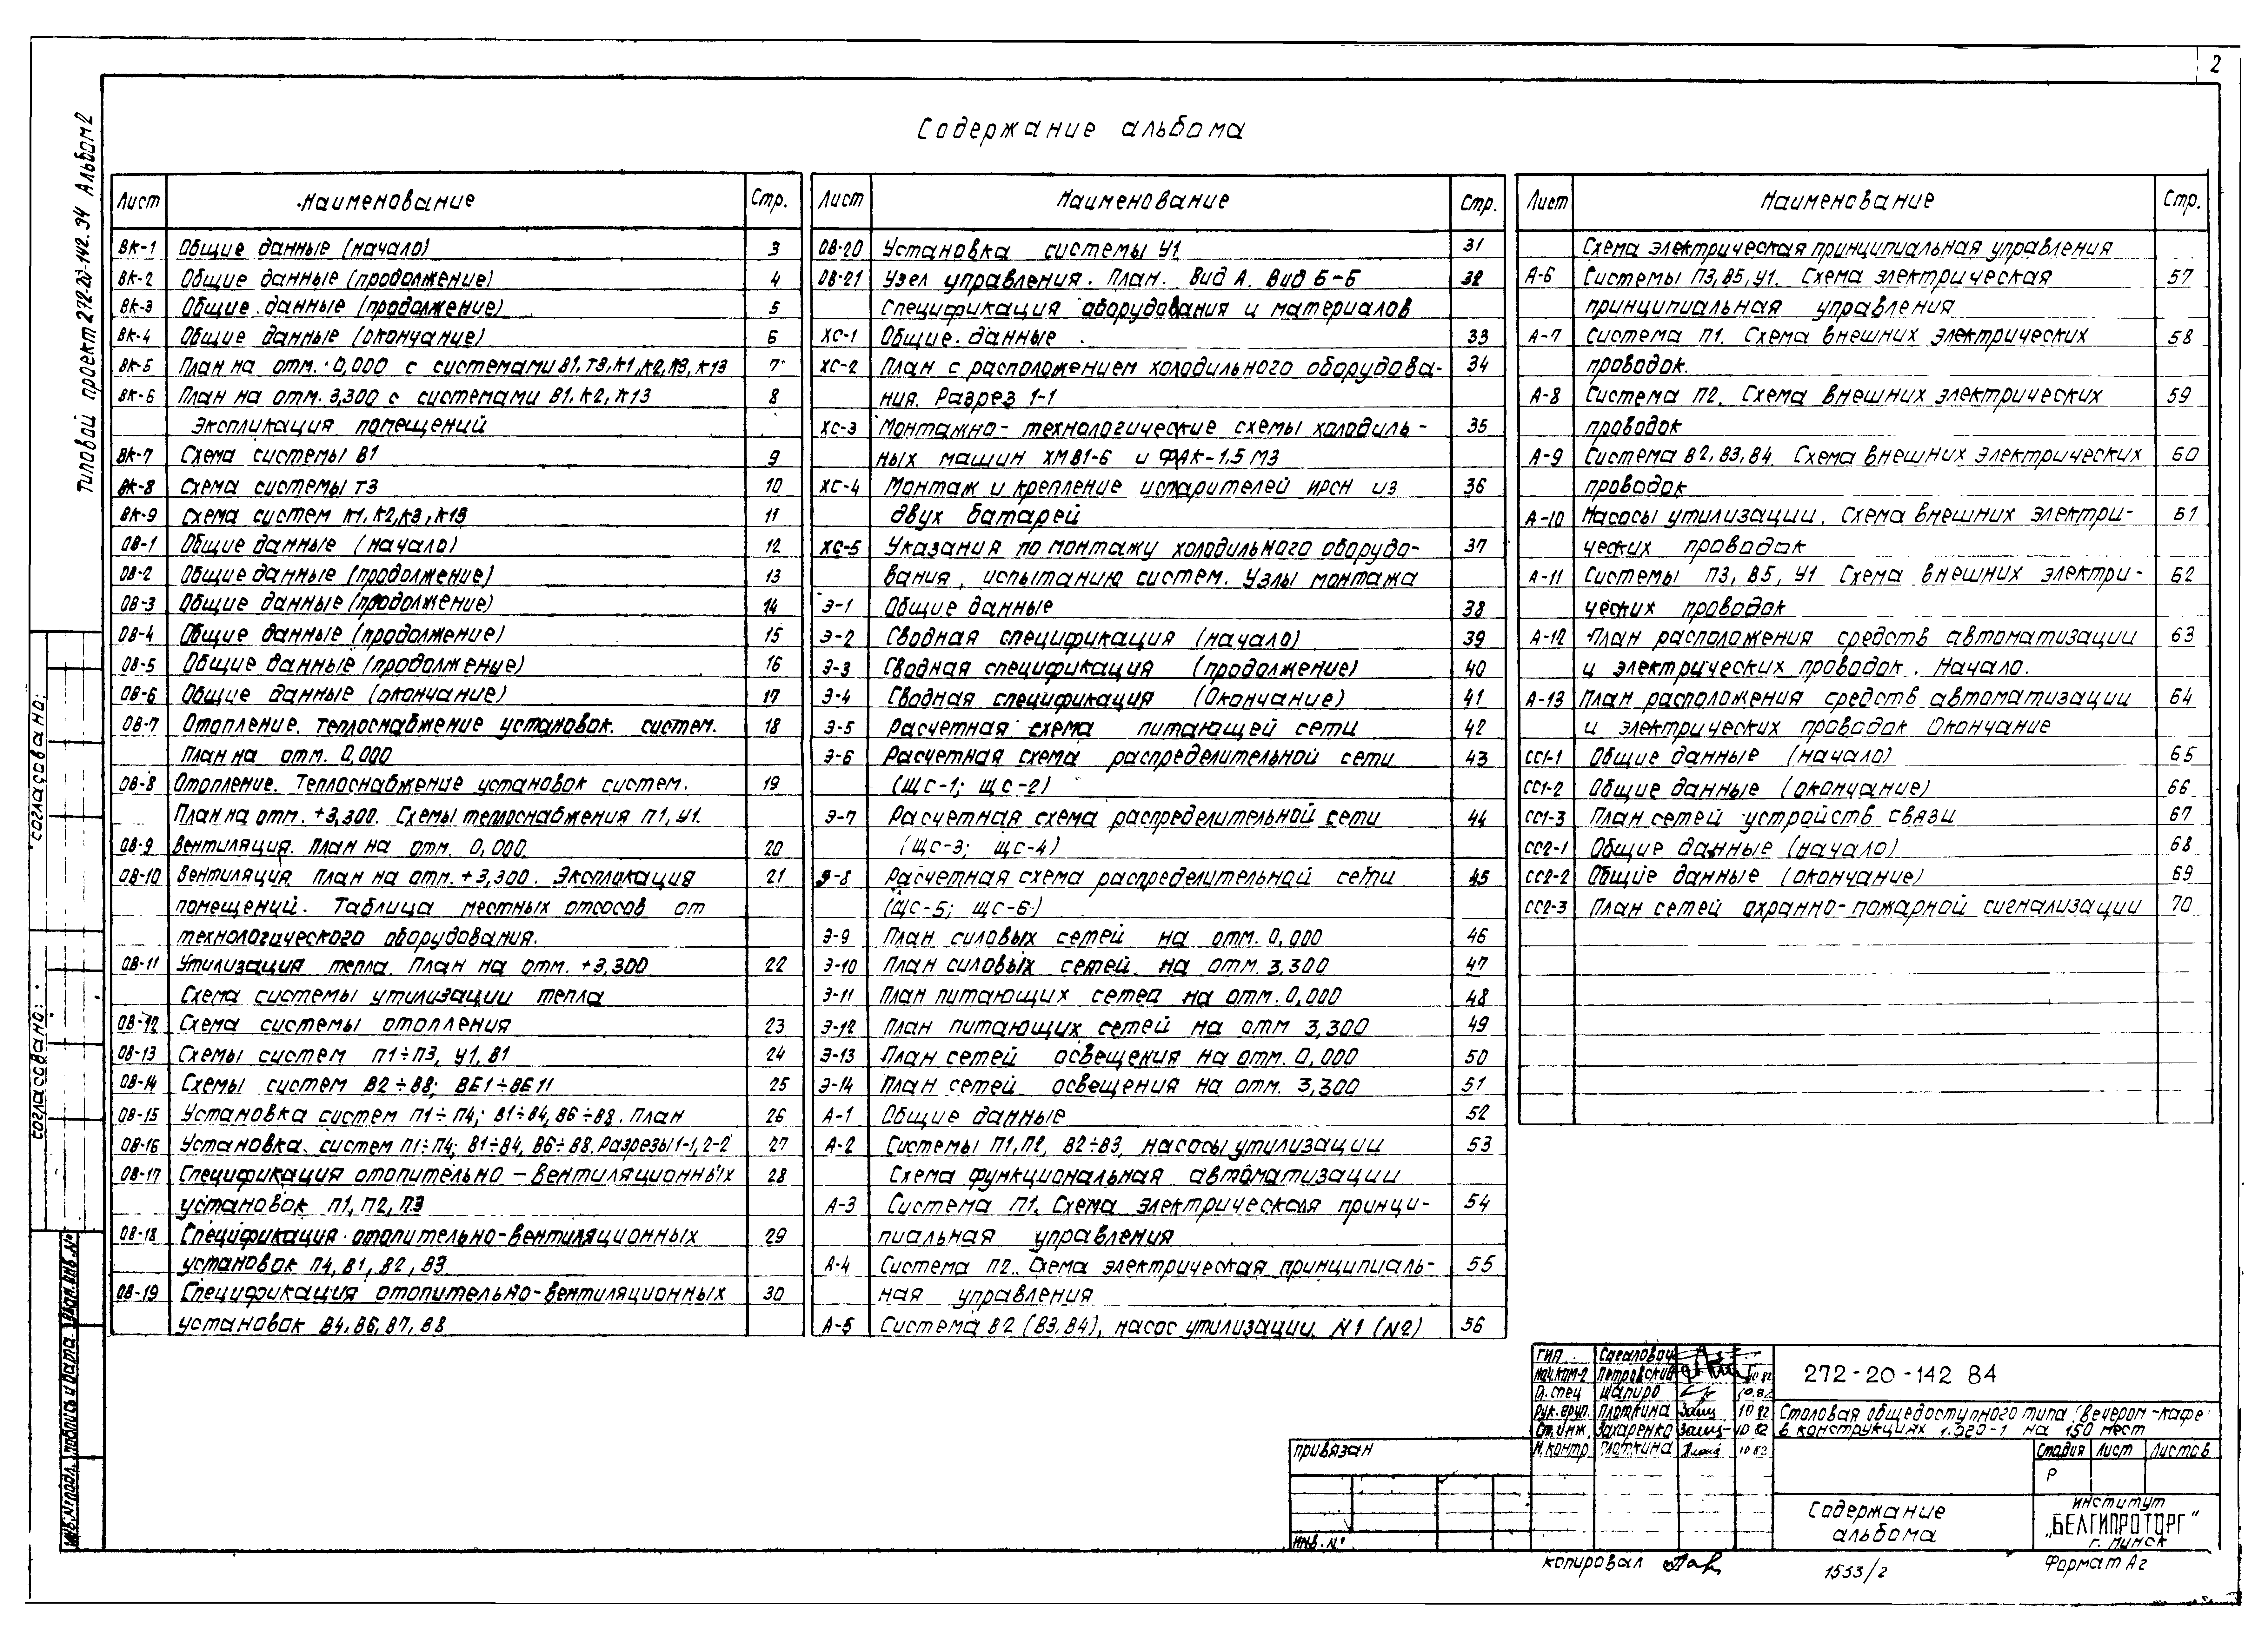 2
Типовой проект 272-20-142.34 Альбом 2
Содержание альбома
Лист Наименование Стр.
ВК-1 Общие данные (начало) 3
ВК-2 Общие данные (продолжение) 4
ВК-3 Общие данные (продолжение) 5
ВК-4 Общие данные (окончание) 6
ВК-5 План на отм. 0,000 с системами В1, Т3, К1, К2, К3, К13 7
ВК-6 План на отм. 3,300 с системами В1, К2, К13 8
Экспликация помещений
ВК-7 Схема системы В1 9
ВК-8 Схема системы Т3 10
ВК-9 Схема систем К1, К2, К3, К13 11
ОВ-1 Общие данные (начало) 12
ОВ-2 Общие данные (продолжение) 13
ОВ-3 Общие данные (продолжение) 14
ОВ-4 Общие данные (продолжение) 15
ОВ-5 Общие данные (продолжение) 16
ОВ-6 Общие данные (окончание) 17
ОВ-7 Отопление. Теплоснабжение установок. систем. 18
План на отм. 0,000
ОВ-8 Отопление. Теплоснабжение установок систем. 19
План на отм. +3,300. Схемы теплоснабжения П1, У1.
ОВ-9 Вентиляция. План на отм. 0,000. 20
ОВ-10 Вентиляция. План на отм. +3,300. Экспликация 21
помещений. Таблица местных отсосов от
технологического оборудования.
ОВ-11 Утилизация тепла. План на отм. +3,300 22
Схема системы утилизации тепла
ОВ-12 Схема системы отопления 23
ОВ-13 Схемы систем П1÷П3, У1, В1 24
ОВ-14 Схемы систем В2÷В8; ВЕ1÷ВЕ11 25
ОВ-15 Установка систем П1÷П4; В1÷В4, В6÷В8. План 26
ОВ-16 Установка систем П1÷П4; В1÷В4, В6÷В8. Разрезы 1-1, 2-2 27
ОВ-17 Спецификация отопительно-вентиляционных 28
установок П1, П2, П3
ОВ-18 Спецификация отопительно-вентиляционных 29
установок П4, В1, В2, В3
ОВ-19 Спецификация отопительно-вентиляционных 30
установок В4, В6, В7, В8
Лист Наименование Стр.
ОВ-20 Установка системы У1. 31
ОВ-21 Узел управления. План. Вид А. Вид Б-Б 32
Спецификация оборудования и материалов
ХС-1 Общие данные 33
ХС-2 План с расположением холодильного оборудова- 34
ния. Разрез 1-1
ХС-3 Монтажно-технологические схемы холодиль- 35
ных машин ХМВ1-6 и ФАК-1.5 М3
ХС-4 Монтаж и крепление испарителей ИРСН из 36
двух батарей
ХС-5 Указания по монтажу холодильного оборудо- 37
вания, испытанию систем. Узлы монтажа
Э-1 Общие данные 38
Э-2 Сводная спецификация (начало) 39
Э-3 Сводная спецификация (продолжение) 40
Э-4 Сводная спецификация (Окончание) 41
Э-5 Расчетная схема питающей сети 42
Э-6 Расчетная схема распределительной сети 43
(ЩС-1; ЩС-2)
Э-7 Расчетная схема распределительной сети 44
(ЩС-3; ЩС-4)
Э-8 Расчетная схема распределительной сети 45
(ЩС-5; ЩС-6)
Э-9 План силовых сетей на отм. 0,000 46
Э-10 План силовых сетей на отм. 3,300 47
Э-11 План питающих сетей на отм. 0,000 48
Э-12 План питающих сетей на отм 3,300 49
Э-13 План сетей освещения на отм. 0.000 50
Э-14 План сетей освещения на отм. 3,300 51
А-1 Общие данные 52
А-2 Системы П1, П2, В2÷В3, насосы утилизации 53
Схема функциональная автоматизации
А-3 Система П1. Схема электрическая принци- 54
пиальная управления
А-4 Система П2. Схема электрическая принципиаль- 55
ная управления
А-5 Система В2 (В3, В4), насос утилизации N1 (N2) 56
Лист Наименование Стр.
Схема электрическая принципиальная управления
А-6 Системы П3, В5, У1. Схема электрическая 57
принципиальная управления
А-7 Система П1. Схема внешних электрических 58
проводок.
А-8 Система П2. Схема внешних электрических 59
проводок
А-9 Система В2, В3, В4. Схема внешних электрических 60
проводок
А-10 Насосы утилизации. Схема внешних электри- 61
ческих проводок
А-11 Системы П3, В5, У1 Схема внешних электри- 62
ческих проводок
А-12 План расположения средств автоматизации 63
и электрических проводок. Начало.
А-13 План расположения средств автоматизации 64
и электрических проводок Окончание
СС1-1 Общие данные (начало) 65
СС1-2 Общие данные (окончание) 66
СС1-3 План сетей устройств связи 67
СС2-1 Общие данные (начало) 68
СС2-2 Общие данные (окончание) 69
СС2-3 План сетей охранно-пожарной сигнализации 70
Согласовано:
Согласовано:
Инв. № подл. Подпись и дата Взам. инв. №
ГИП Сагалович
Нач.ком-2 Петровский 10 82
Гл. спец Шапиро 10.82
Рук. груп. Плоткина 10 82
Ст. инж. Захаренко 10 82
Н. контр Плоткина 10 82
272-20-142 84
Столовая общедоступного типа (вечером-кафе)
в конструкциях 1.020-1 на 150 мест
Стадия Лист Листов
Р
Содержание
альбома
институт
„БЕЛГИПРОТОРГ"
г. Минск
Привязан
Инв. №
Копировал
1533/2
Формат А2